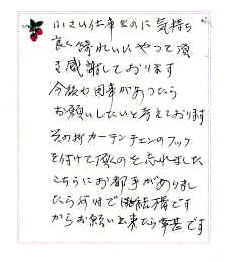 小さい仕事なのに気持ち
良く綺れいにやって頂
き感謝しております
今後も用事があったら
お願いしたいと考えております
その折カーテンチェンのフック
を付けて頂くのを忘れました
こちらにお がありまし
たら何時で 結構です
からお願い出来たら幸甚です